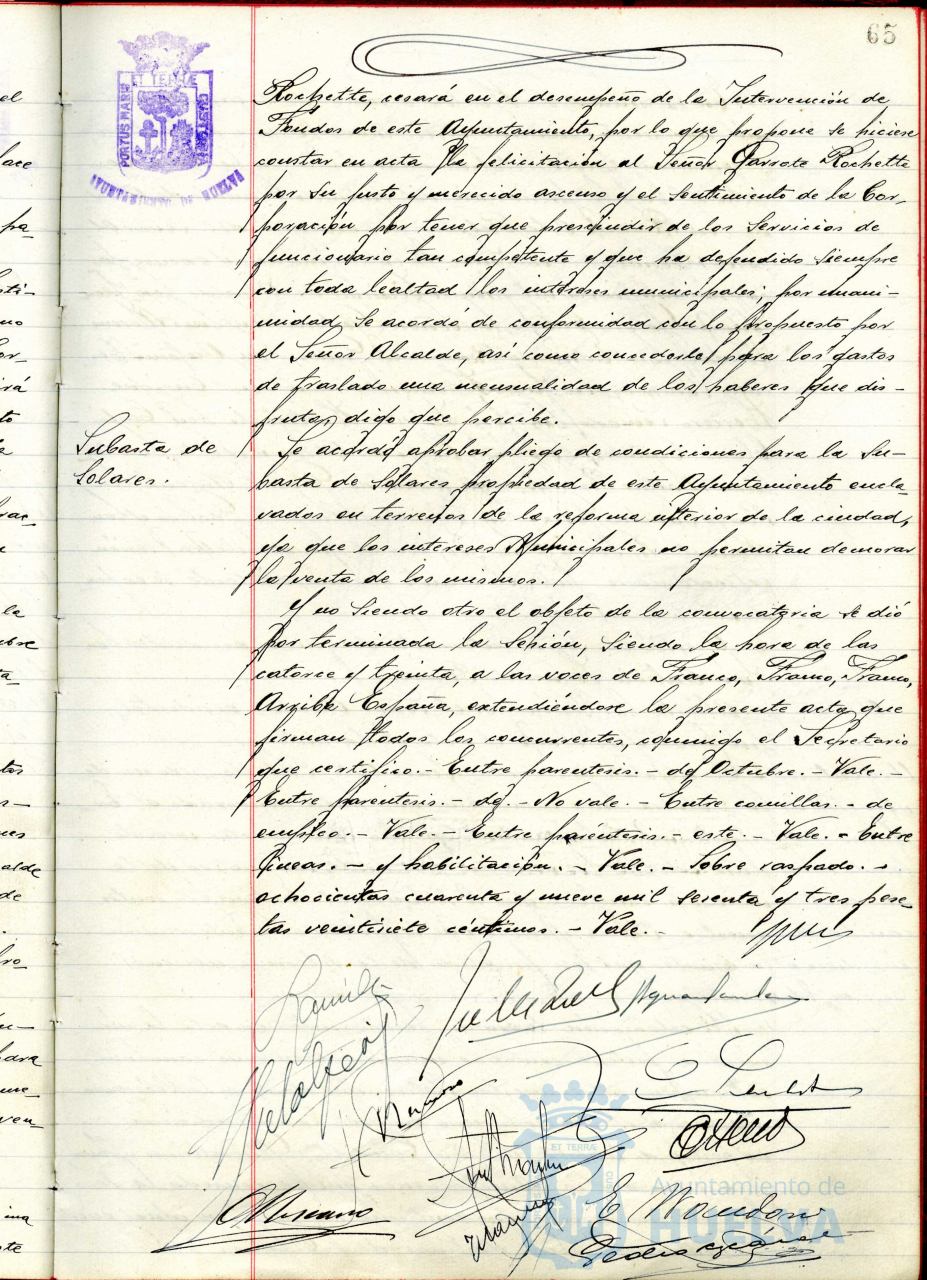 65
ET TERRÆ
PORTUS MARIS
CUSTODIA
AYUNTAMIENTO DE HUELVA
Rochette, cesará en el desempeño de la Intervención de
Fondos de este Ayuntamiento, por lo que propone se hiciese
constar en acta la felicitación al Señor Garrote Rochette
por su justo y merecido ascenso y el sentimiento de la Cor-
poración por tener que prescindir de los servicios de
funcionario tan competente y que ha defendido siempre
con toda lealtad los intereses municipales; por unani-
midad se acordó de conformidad con lo propuesto por
el Señor Alcalde, así como concederle para los gastos
de traslado una mensualidad de los haberes que dis-
fruta, digo que percibe.
Subasta de
Solares.
Se acordó aprobar pliego de condiciones para la su-
basta de solares propiedad de este Ayuntamiento encla-
vados en terrenos de la reforma interior de la ciudad,
ya que los intereses Municipales no permitan demorar
la venta de los mismos.
Y no siendo otro el objeto de la convocatoria se dió
por terminada la sesión, siendo la hora de las
catorce y treinta, a las voces de Franco, Franco, Franco,
Arriba España, extendiéndose la presente acta que
firman todos los concurrentes, conmigo el Secretario
que certifico.- Entre parentesis.- de Octubre.- Vale.-
Entre parentesis.- de.- No vale.- Entre comillas.- de
empleo.- Vale.- Entre paréntesis.- este.- Vale.- Entre
líneas.- y habilitación.- Vale.- Sobre raspado.-
ochocientas cuarenta y nueve mil sesenta y tres pese-
tas veintisiete céntimos.- Vale.-
E. Mandon
Pedro
ET TERRÆ
Ayuntamiento de
HUELVA